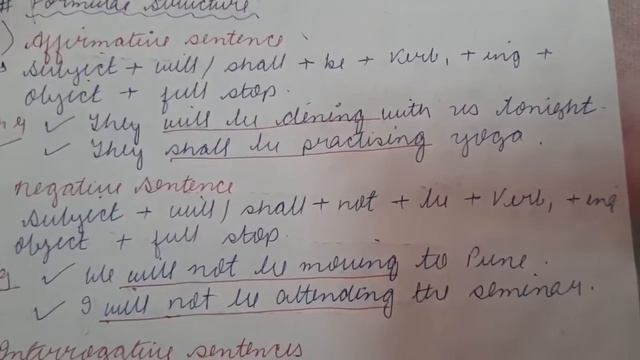 # Formulae Structure
) Affirmative sentence
subject + will/ shall + be + Verb, + ing +
object + full stop.
✓ They will be dining with us tonight.
✓ They shall be practising yoga.
negative sentence
subject + will/ shall + not + be + Verb, + ing
object + full stop.
✓ We will not be moving to Pune.
✓ I will not be attending the seminar.
Interrogative sentences